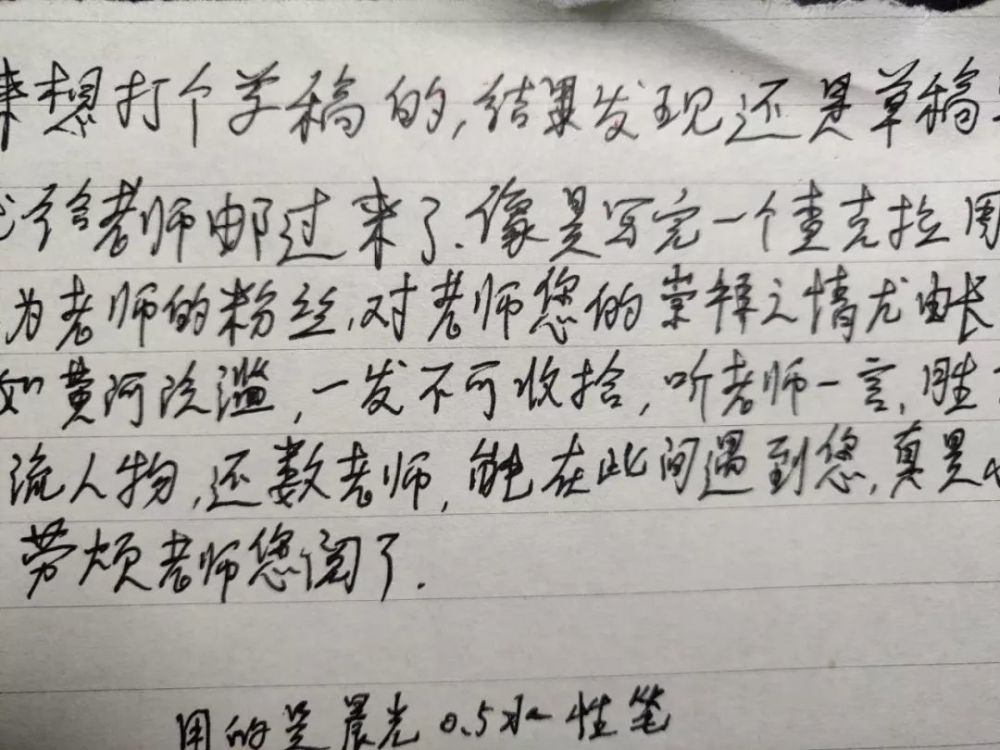 来想打个草稿的,结果发现还是草稿
给老师邮过来了.像是写完一个查克拉用
为老师的粉丝,对老师您的崇拜之情尤由长
如黄河泛滥,一发不可收拾,听老师一言,胜
流人物,还数老师,能在此间遇到您,真是
劳烦老师您阅了.
用的是晨光0.5水性笔